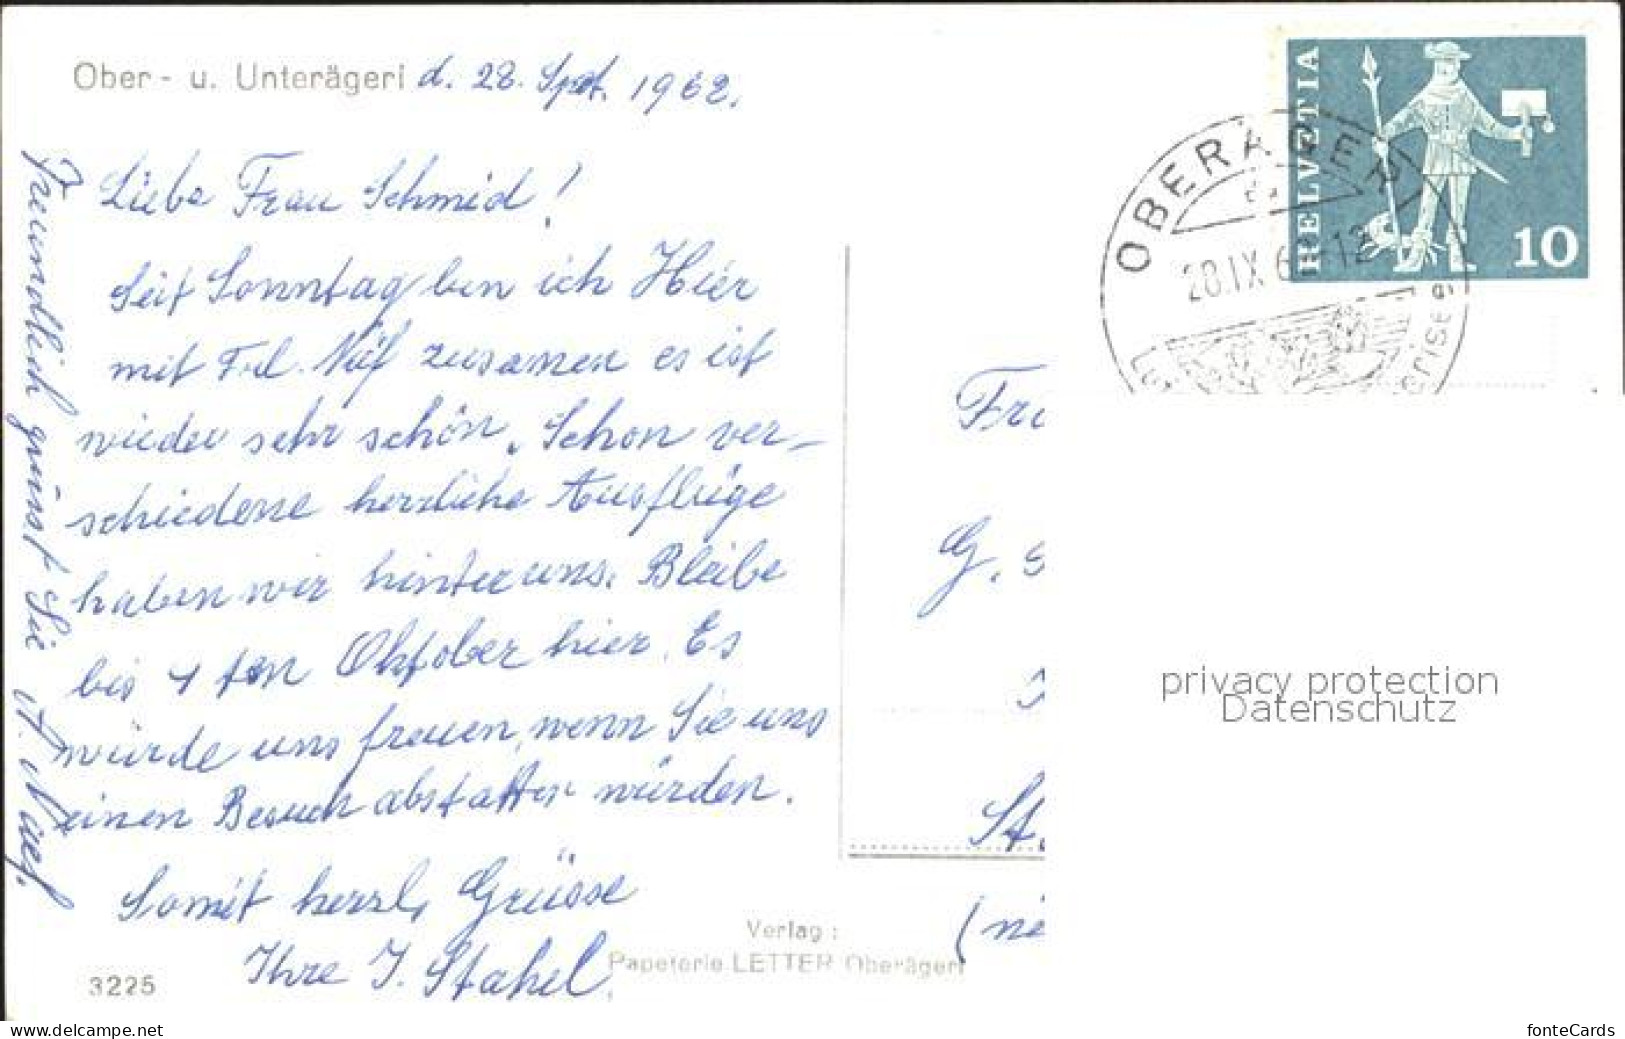 Ober- u. Unterägeri d. 28. Sept. 1962.
Liebe Frau Schmid!
Seit Sonntag bin ich Hier
mit Frl. Näf zusamen es ist
wieder sehr schön. Schon ver-
schiedene herrliche Ausflüge
haben wir hinter uns. Bleibe
bis 4 ten Oktober hier. Es
würde uns freuen, wenn Sie uns
einen Besuch abstatten würden.
Somit herzl. Grüsse
Ihre J. Stahel.
Freundlich grüsst Sie A. Naef.
3225
Verlag:
Papeterie LETTER Oberägeri
HELVETIA
10
OBERÄGERI
28.IX.6 -12
Fr
G. S
St.
(ni
privacy protection
Datenschutz
www.delcampe.net
fonteCards